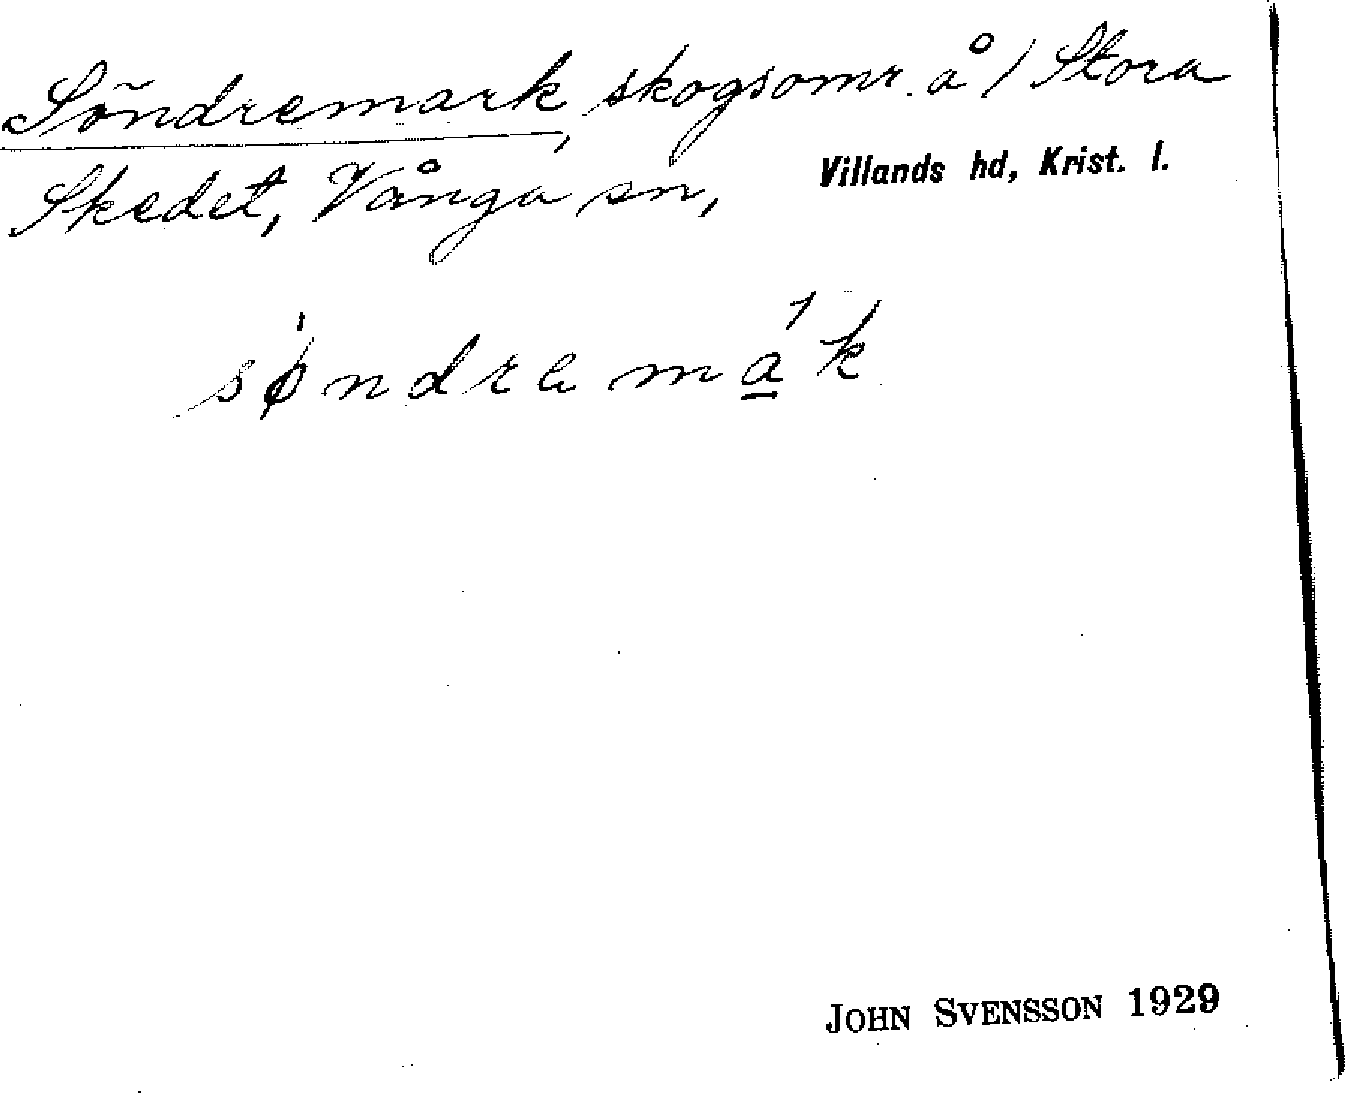 Söndremark, skogsomr. å / Stora
Skedet, Vånga sn, Villands hd, Krist. l.
søndramak
JOHN SVENSSON 1929